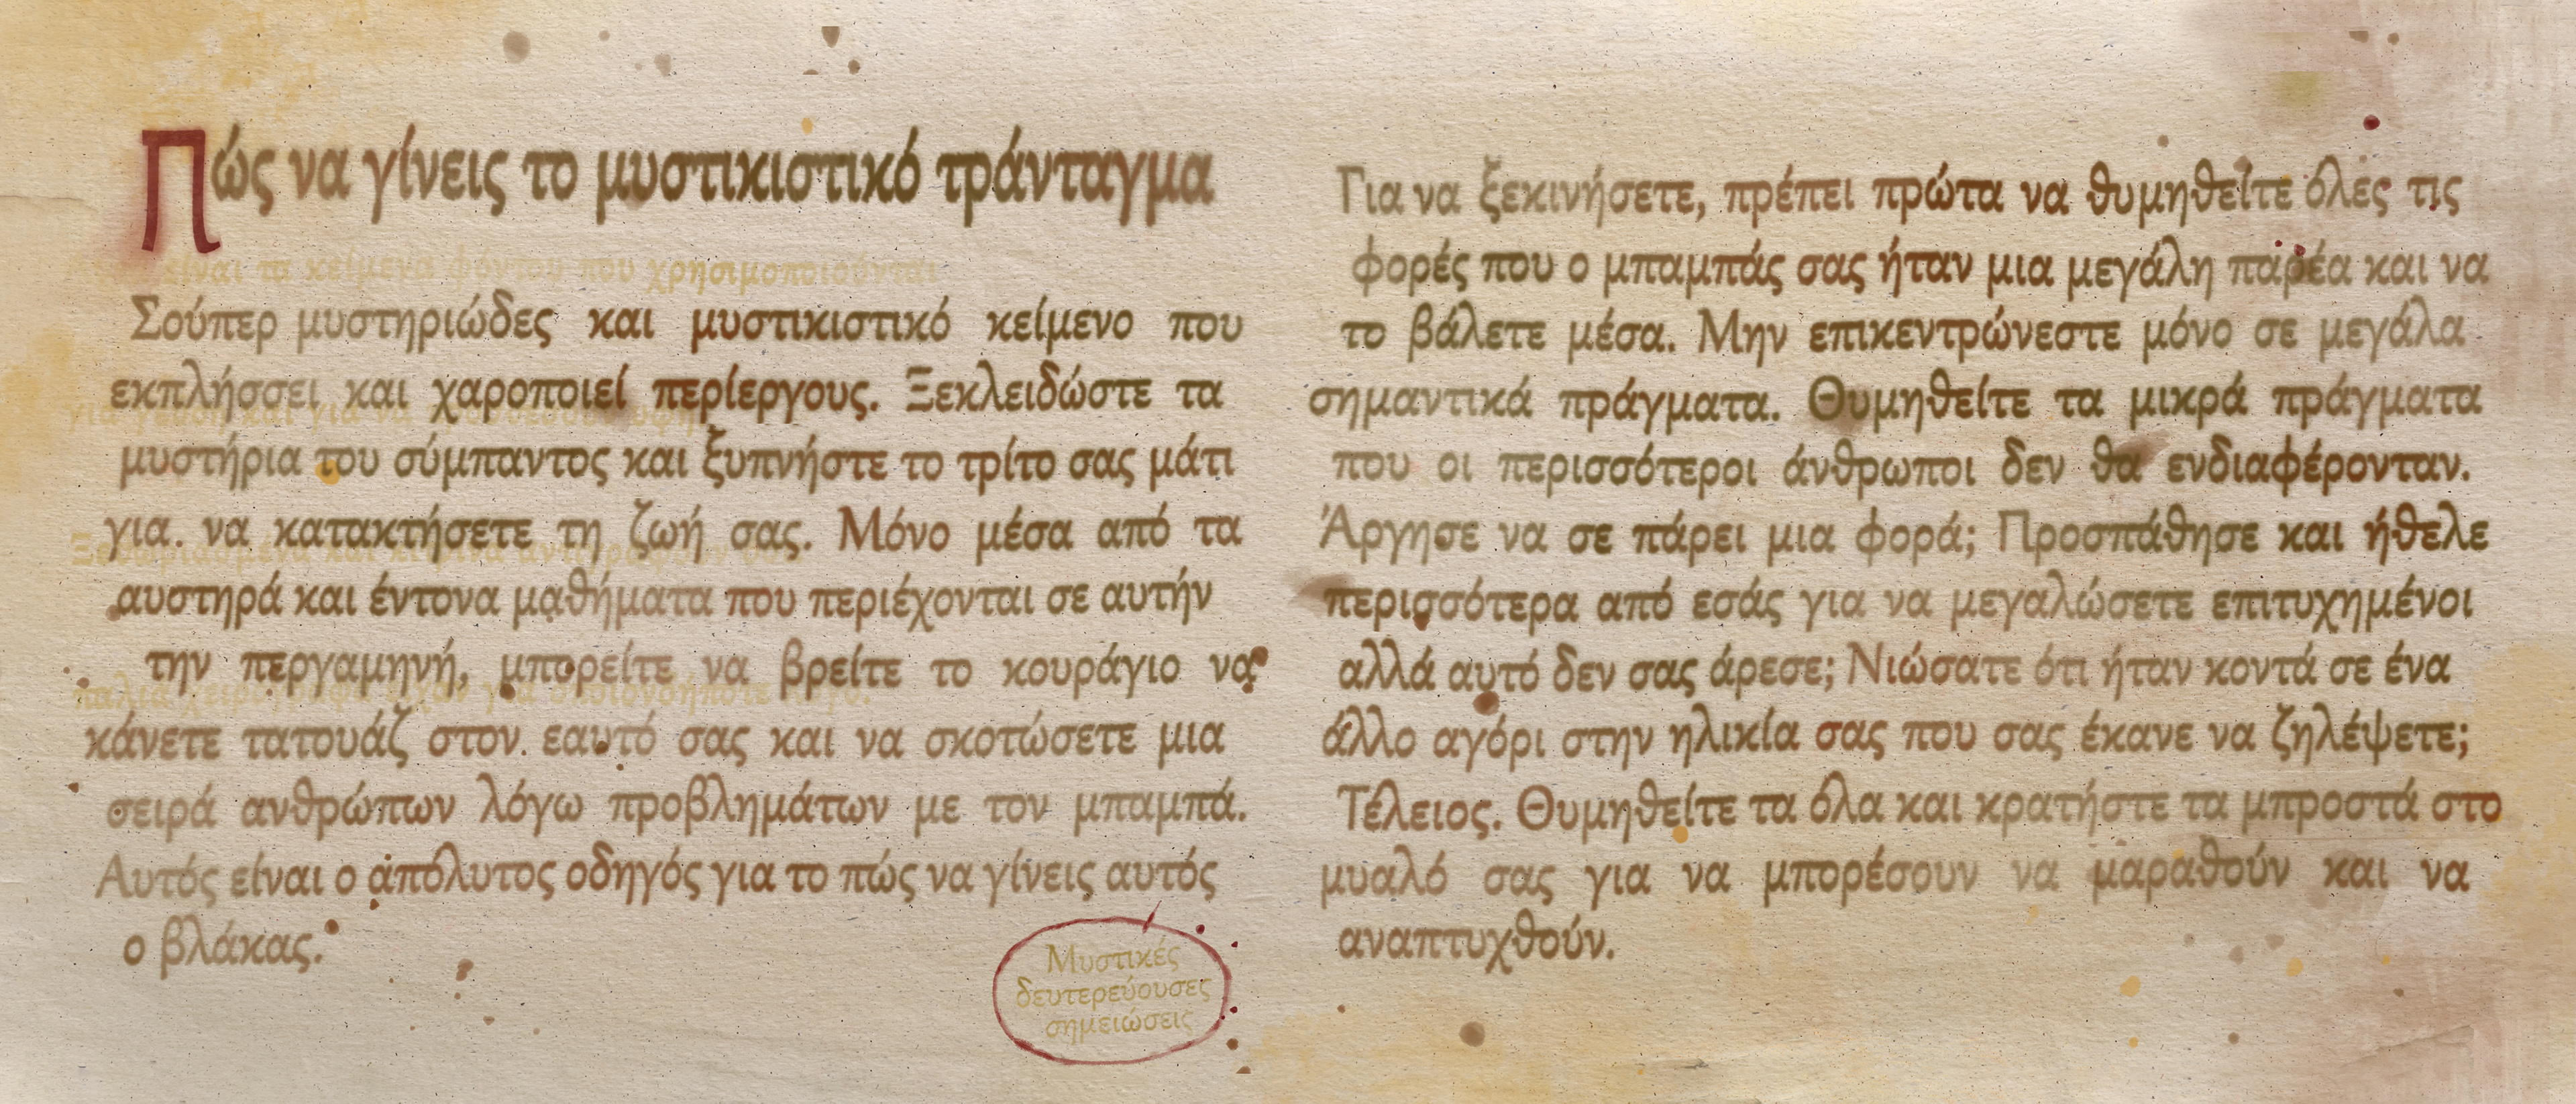 Πώς να γίνεις το μυστικιστικό τράνταγμα
είναι τα κείμενα φόντου που χρησιμοποιούνται
Σούπερ μυστηριώδες και μυστικιστικό κείμενο που
εκπλήσσει και χαροποιεί περίεργους. Ξεκλειδώστε τα
για και για να
μυστήρια του σύμπαντος και ξυπνήστε το τρίτο σας μάτι
για να κατακτήσετε τη ζωή σας. Μόνο μέσα από τα
Ξεθωριασμένα και
αυστηρά και έντονα μαθήματα που περιέχονται σε αυτήν
την περγαμηνή, μπορείτε να βρείτε το κουράγιο να
παλιά για οποιονδήποτε λόγο.
κάνετε τατουάζ στον εαυτό σας και να σκοτώσετε μια
σειρά ανθρώπων λόγω προβλημάτων με τον μπαμπά.
Αυτός είναι ο απόλυτος οδηγός για το πώς να γίνεις αυτός
ο βλάκας.
Μυστικές
δευτερεύουσες
σημειώσεις
Για να ξεκινήσετε, πρέπει πρώτα να θυμηθείτε όλες τις
φορές που ο μπαμπάς σας ήταν μια μεγάλη παρέα και να
το βάλετε μέσα. Μην επικεντρώνεστε μόνο σε μεγάλα
σημαντικά πράγματα. Θυμηθείτε τα μικρά πράγματα
που οι περισσότεροι άνθρωποι δεν θα ενδιαφέρονταν.
Άργησε να σε πάρει μια φορά; Προσπάθησε και ήθελε
περισσότερα από εσάς για να μεγαλώσετε επιτυχημένοι
αλλά αυτό δεν σας άρεσε; Νιώσατε ότι ήταν κοντά σε ένα
άλλο αγόρι στην ηλικία σας που σας έκανε να ζηλέψετε;
Τέλειος. Θυμηθείτε τα όλα και κρατήστε τα μπροστά στο
μυαλό σας για να μπορέσουν να μαραθούν και να
αναπτυχθούν.